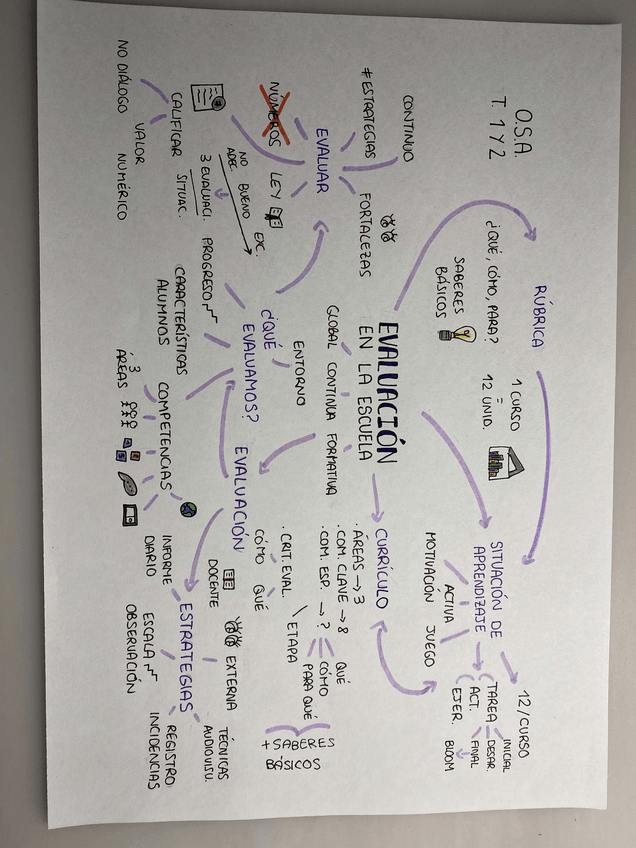 O.S.A.
T. 1 Y 2
RÚBRICA
¿QUÉ, CÓMO, PARA?
SABERES
BÁSICOS
1 CURSO
=
12 UNID.
SITUACIÓN DE
APRENDIZAJE
12/CURSO
TAREA
ACT.
EJER.
INICIAL
DESAR.
FINAL
BLOOM
ACTIVA
MOTIVACIÓN
JUEGO
CONTINUO
≠ ESTRATEGIAS
NÚMEROS
EVALUAR
FORTALEZAS
LEY
CALIFICAR
NO DIÁLOGO
VALOR
NUMÉRICO
3 EVALUACI.
SITUAC.
NO
ADEC.
BUENO
EXC.
EVALUACIÓN
EN LA ESCUELA
GLOBAL
CONTINUA
FORMATIVA
¿QUÉ
EVALUAMOS?
ENTORNO
PROGRESO
CARACTERÍSTICAS
ALUMNOS
COMPETENCIAS
3
ÁREAS
CURRÍCULO
. ÁREAS → 3
. COM. CLAVE → 8
. COM. ESP. → ?
. CRIT. EVAL.
QUÉ
CÓMO
PARA QUÉ
ETAPA
+ SABERES
BÁSICOS
EVALUACIÓN
CÓMO
QUÉ
ESTRATEGIAS
DOCENTE
EXTERNA
TÉCNICAS
AUDIOVISU.
INFORME
DIARIO
ESCALA
OBSERVACIÓN
REGISTRO
INCIDENCIAS